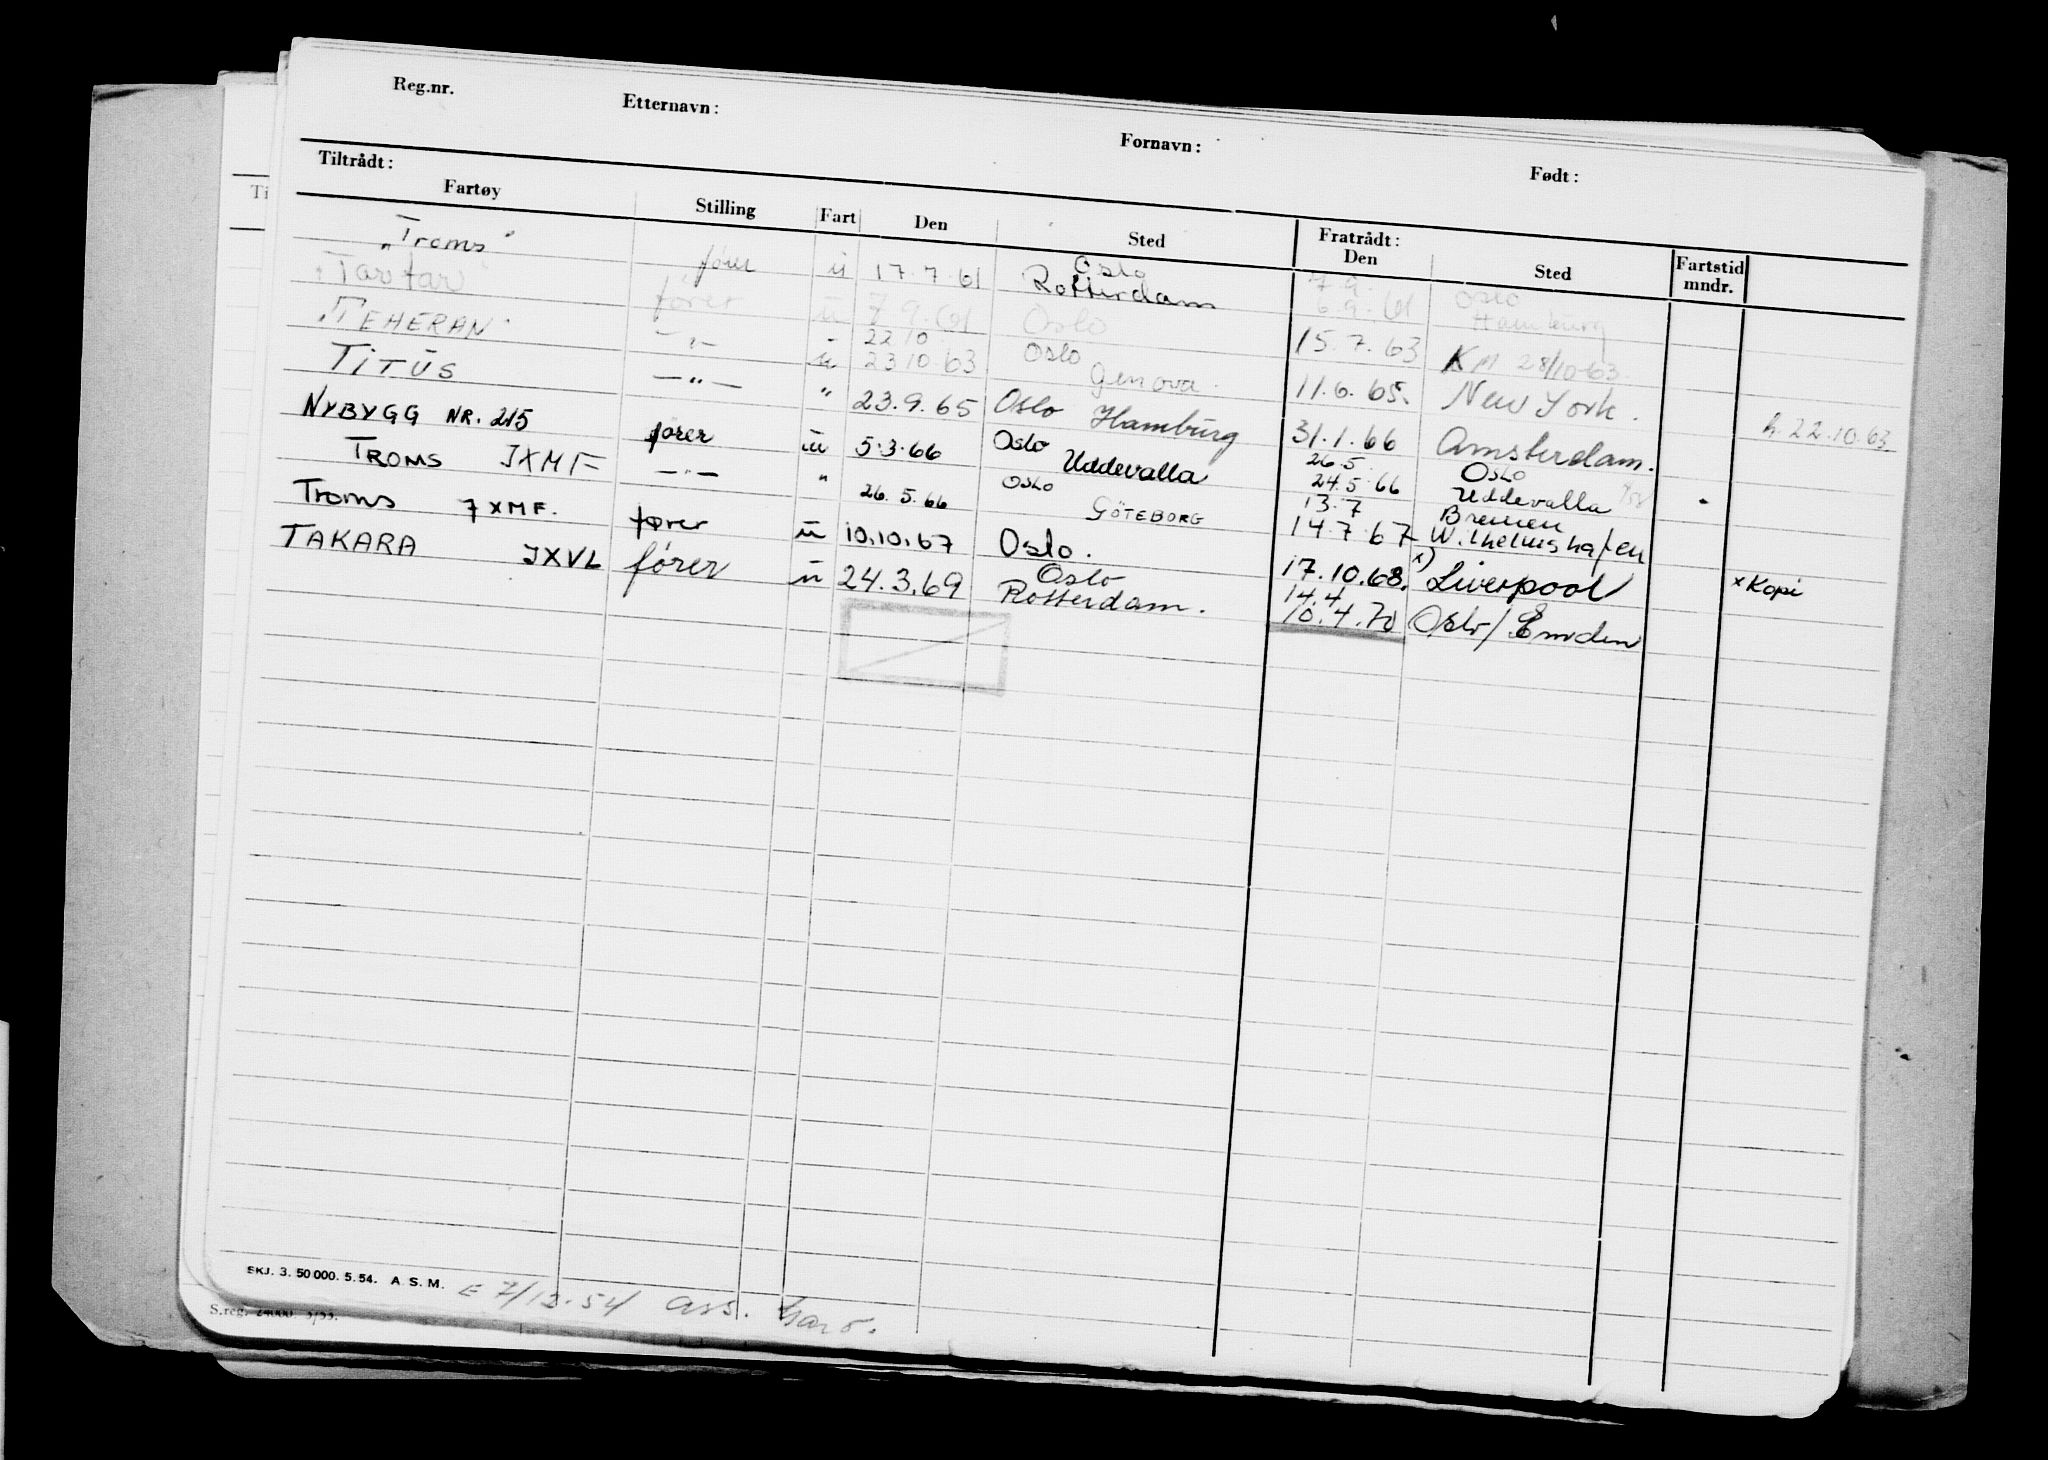 Reg.nr. Etternavn: Fornavn: Født:
Tiltrådt: Fratrådt:
Fartøy Stilling Fart Den Sted Den Sted Fartstid mndr.
Ti
"Troms" fører u 17.7.61 Oslo Rotterdam 7.9. 6.9.61 Oslo Hamburg
"Tartar" fører u 7.9.61 Oslo 15.7.63 KM 28/10-63.
"TEHERAN" —"— u 22 10 23 10 63 Oslo Genova. 11.6.65. New York. h. 22.10.63.
TITUS —"— " 23.9.65 Oslo Hamburg 31.1.66 Amsterdam.
NYBYGG NR. 215 fører u 5.3.66 Oslo Uddevalla 26.5. 24.5.66 Oslo Uddevalla
TROMS JXMF —"— " 26.5.66 Oslo GÖTEBORG 13.7 14.7.67 Bremen Wilhelmshafen
Troms JXMF. fører u 10.10.67 Oslo. 17.10.68. x) Liverpool x Kopi
TAKARA JXVL fører u 24.3.69 Oslo Rotterdam. 14.4 10.4.70 Oslo/Emden
SKJ. 3. 50 000. 5. 54. A. S. M. E 7/12-54 ass.
S.reg. 24000 3/53.